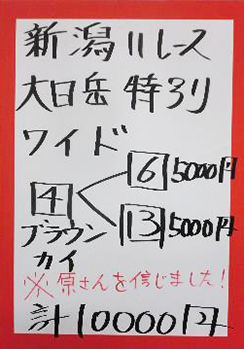 新潟11レース
大日岳特別
ワイド
6 5000円
4
13 5000円
ブラウン
カイ
※原さんを信じました!
計10000円